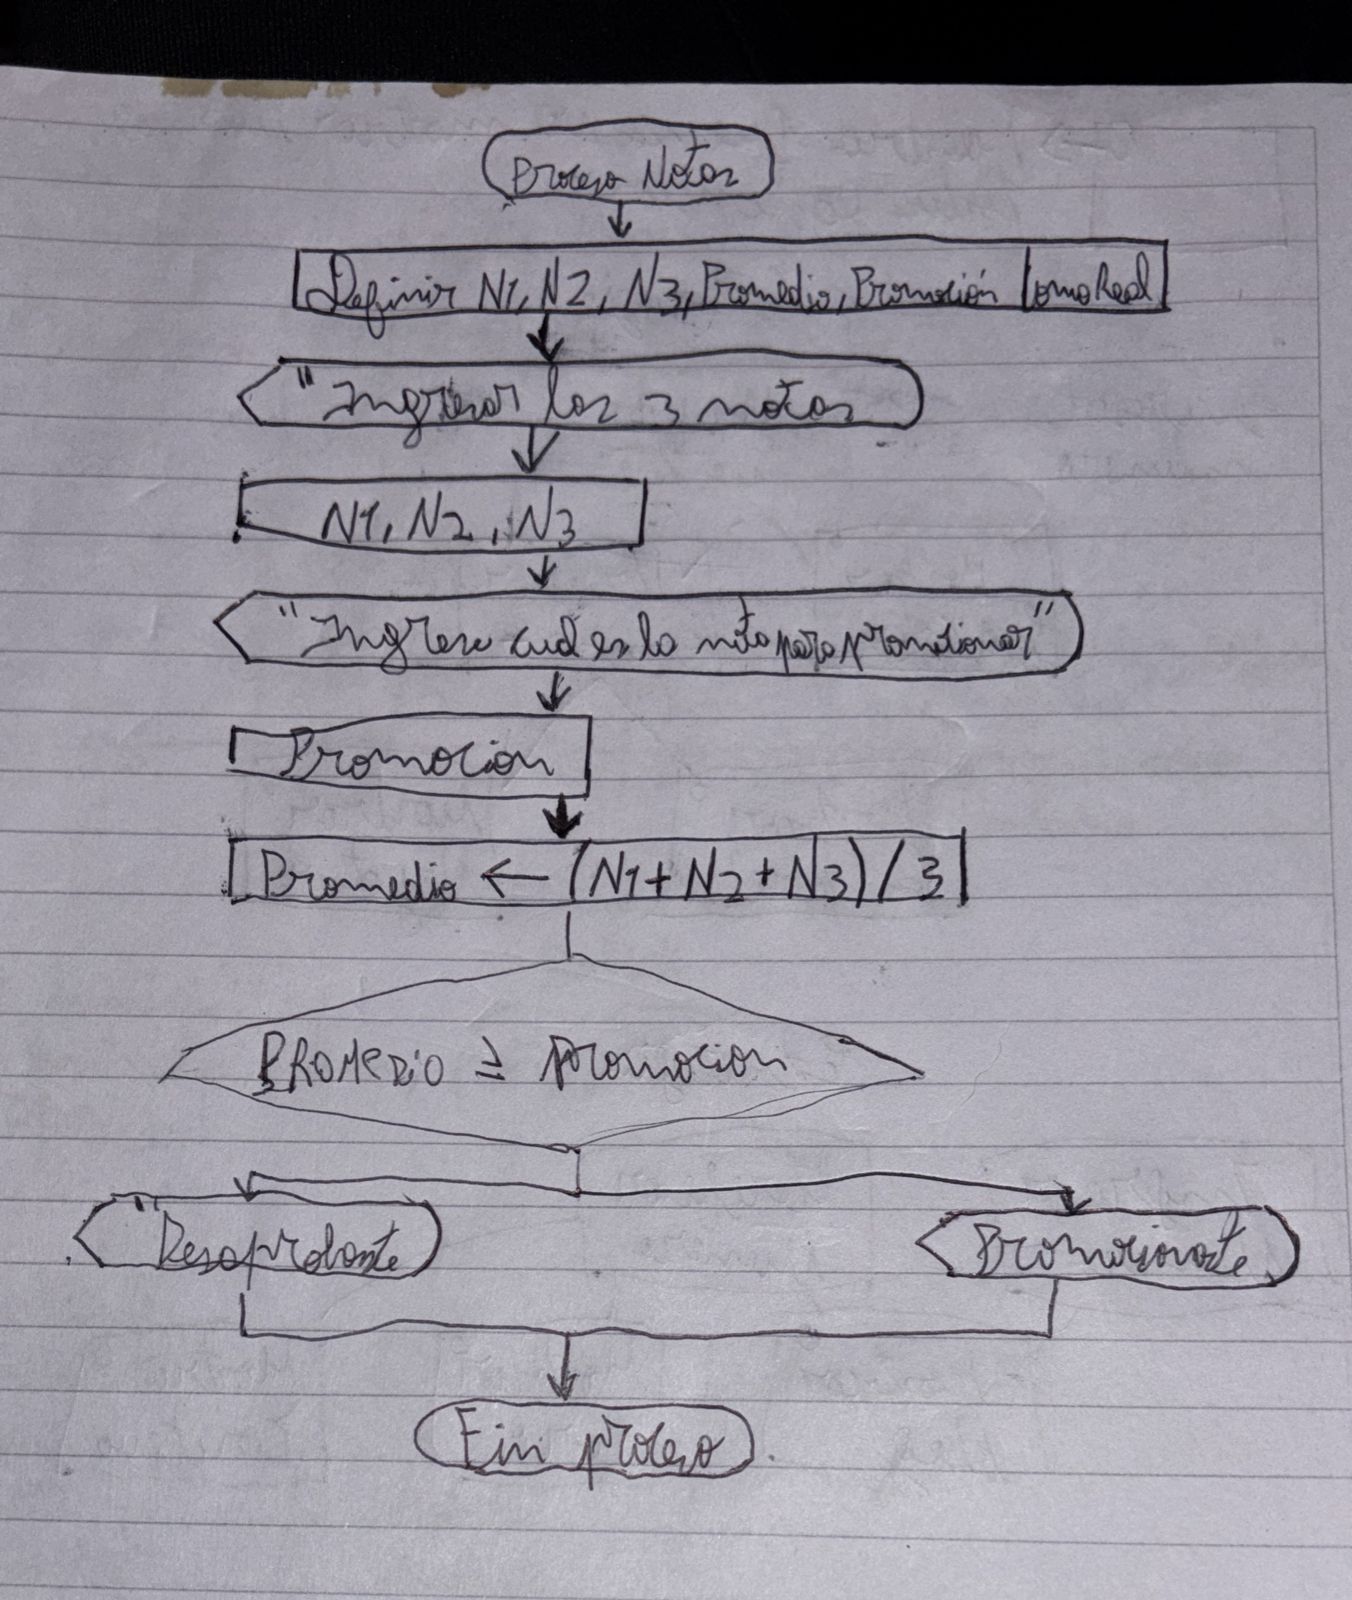 Proceso Notas
Definir N1, N2, N3, Promedio, Promoción Como Real
"Ingresar las 3 notas
N1, N2, N3
"Ingrese cual es la nota para promocionar"
Promocion
Promedio ← (N1+N2+N3)/3
PROMEDIO ≥ promocion
"Desaprobaste
Promocionaste
Fin proceso